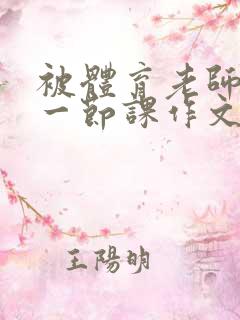 被體育老師
一節課作文
王陽明